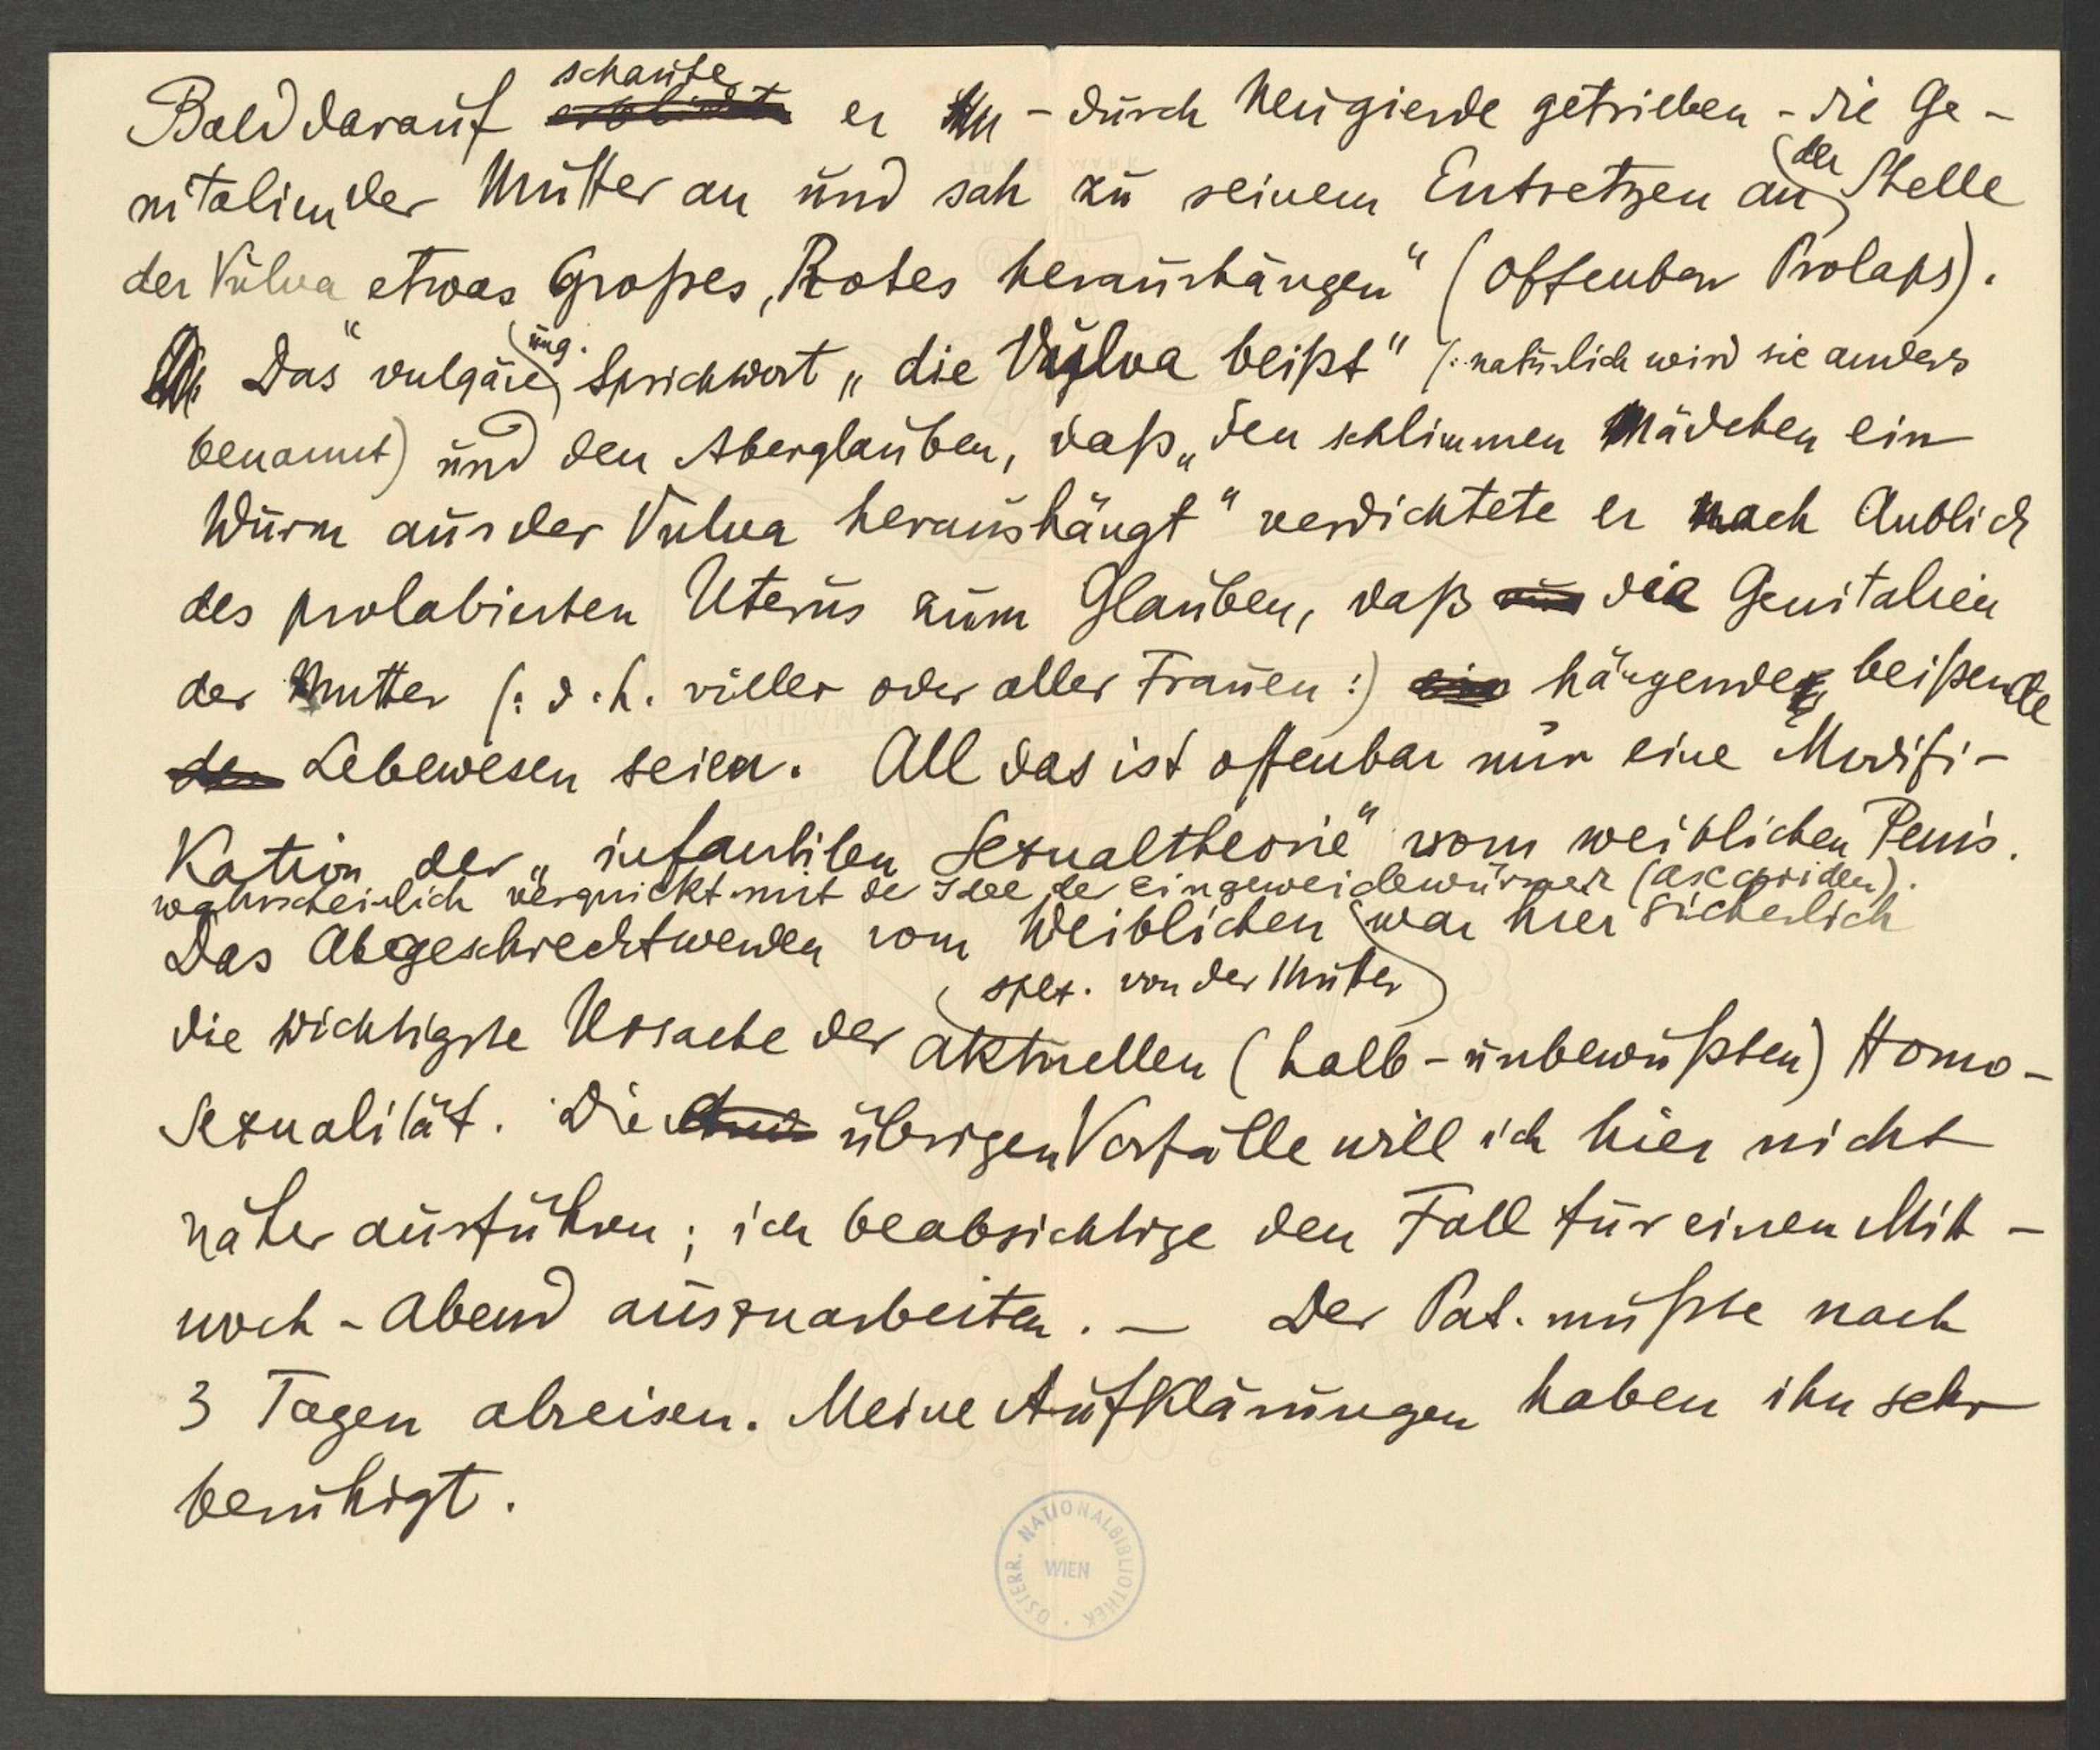 Bald darauf schaute er – durch Neugierde getrieben – die Ge-
nitalien der Mutter an und sah zu seinem Entsetzen an der Stelle
der Vulva etwas Großes, Rotes heraushängen" (offenbar Prolaps).
Das vulgäre ung. Sprichwort „die Vulva beißt" (: natürlich wird sie anders
benannt) und den Aberglauben, daß „den schlimmen Mädchen ein
Wurm aus der Vulva heraushängt" verdichtete er nach Anblick
des prolabierten Uterus zum Glauben, daß die Genitalien
der Mutter (: d. h. vieler oder aller Frauen :) hängende, beißende
Lebewesen seien. All das ist offenbar nur eine Modifi-
Kation der „infantilen Sexualtheorie" vom weiblichen Penis.
wahrscheinlich verquickt mit der Idee der Eingeweidewürmer (Ascariden).
Das Abgeschrecktwerden vom Weiblichen war hier sicherlich
spez. von der Mutter
die wichtigste Ursache der aktuellen (halb-unbewußten) Homo-
Sexualität. Die übrigen Vorfälle will ich hier nicht
näher ausführen; ich beabsichtige den Fall für einen Mitt-
woch-Abend auszuarbeiten. – Der Pat. mußte nach
3 Tagen abreisen. Meine Aufklärungen haben ihn sehr
beruhigt.
ÖSTERR. NATIONALBIBLIOTHEK
WIEN